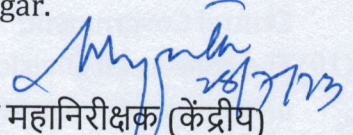 gar.
28/7/23
महानिरीक्षक (केंद्रीय)